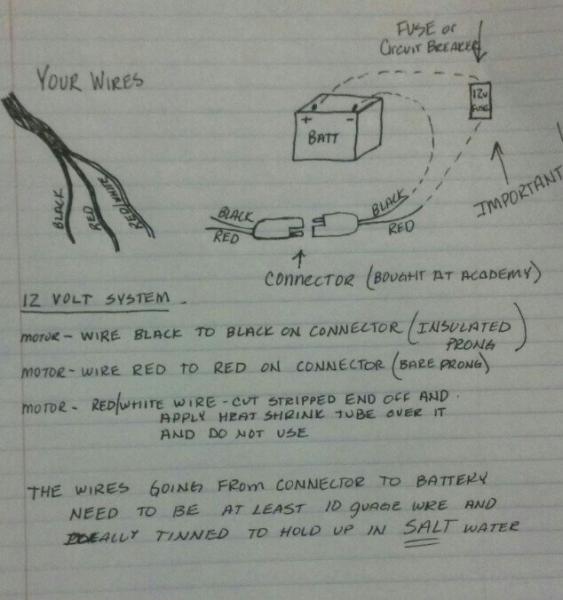 FUSE or
CIRCUIT BREAKER
YOUR WIRES
12V
FUSE
+ -
BATT
BLACK
RED
RED/WHITE
BLACK
RED
BLACK
RED
IMPORTANT
CONNECTOR (BOUGHT AT ACADEMY)
12 VOLT SYSTEM.
MOTOR - WIRE BLACK TO BLACK ON CONNECTOR (INSULATED
PRONG)
MOTOR - WIRE RED TO RED ON CONNECTOR (BARE PRONG)
MOTOR - RED/WHITE WIRE - CUT STRIPPED END OFF AND
APPLY HEAT SHRINK TUBE OVER IT
AND DO NOT USE
THE WIRES GOING FROM CONNECTOR TO BATTERY
NEED TO BE AT LEAST 10 GUAGE WIRE AND
IDEALLY TINNED TO HOLD UP IN SALT WATER